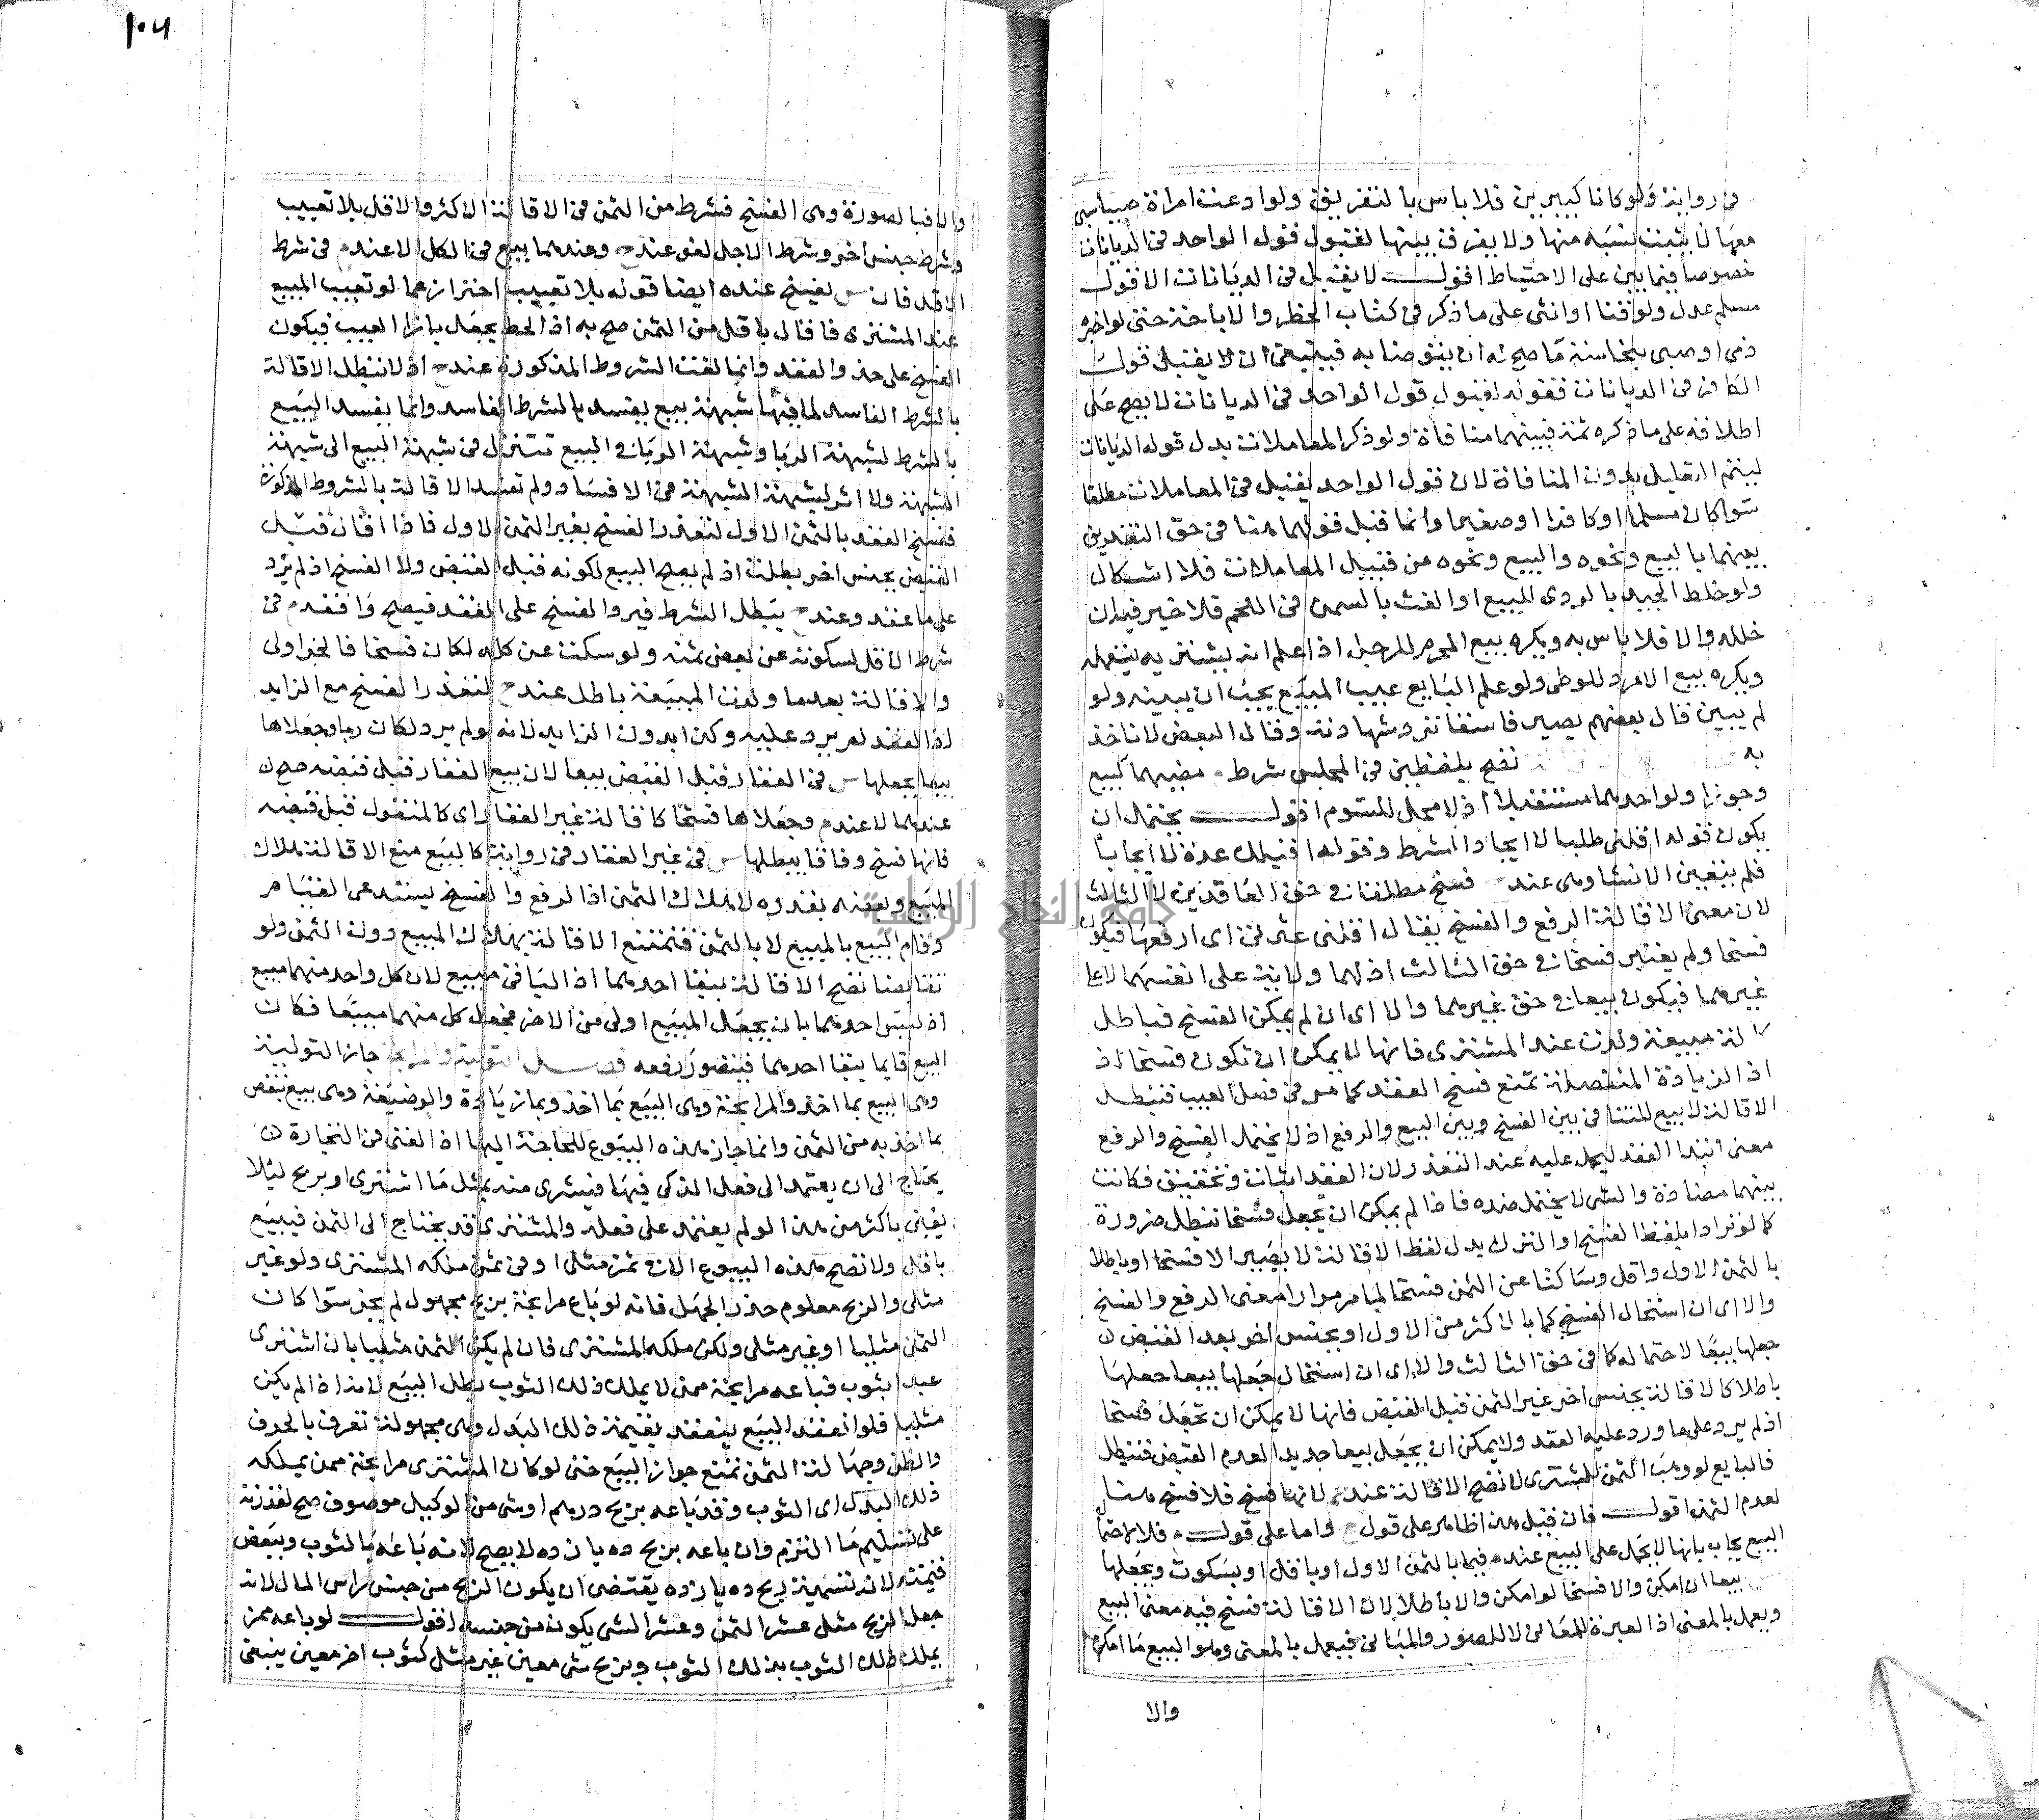 في رواية ولو كانا كبيرين فلا باس بالتفريق ولو ادعت امراة صبيا سبي
معها لا يثبت نسبه منها ولا يفرق بينها لقبول قول الواحد في الديانات
خصوصا فيما بين على الاحتياط اقول لا يقبل في الديانات الا قول
مسلم عدل ولو قنا او انثى على ما ذكر في كتاب الحظر والاباحة حتى لو اخبره
ذمي او صبي بنجاسة ما صح له ان يتوضا به فينبغي ان لا يقبل قول
الكافر في الديانات فقوله لقبول قول الواحد في الديانات لا يصح على
اطلاقه على ما ذكره ثمة فبينهما منافاة ولو ذكر المعاملات بدل قوله الديانات
ليتم التعليل بدون المنافاة لان قول الواحد يقبل في المعاملات مطلقا
سوا كان مسلما او كافرا او صغيرا وانما قبل قولهما هنا في حق التفريق
بينهما بالبيع ونحوه والبيع ونحوه من قبيل المعاملات فلا اشكال
ولو خلط الجيد بالردى المبيع او الغث بالسمين في اللحم فلا خير فيه ان
خلله والا فلا باس به ويكره بيع المحرم للرجل اذا علم انه يشتريه يستعمله
ويكره بيع الامرد للوطى ولو علم البايع عيب المبيع يجب ان يبينه ولو
لم يبين قال بعضهم يصير فاسقا ترد شهادته وقال البعض لا ناخذ
به تصح بلفظين في المجلس شرط م مضيهما كبيع
وجوزا ولو احدهما مستقبلا اذ لا محل للسوم اقول يحتمل ان
يكون قوله اقلني طلبا لا ايجادا لشرط وقوله اقيلك عدة لا ايجابا
فلم يتعين الانشا وهى عند فسخ مطلقا في حق العاقدين لا الثالث
لان معنى الاقالة الرفع والفسخ يقال اقلني عثرتي اى ارفعها فيكون
فسخا ولم يعتبر فسخا في حق الثالث اذ لهما ولاية على انفسهما لا على
غيرهما فيكون بيعا في حق غيرهما والا اى ان لم يمكن الفسخ فباطل
كاقالة مبيعة ولدت عند المشترى فانها لا يمكن ان تكون فسخا اذ
اذ الزيادة المنفصلة تمنع فسخ العقد كما مر في فصل العيب فتبطل
الاقالة لا بيع للتنافي بين الفسخ وبين البيع والرفع اذ لا يحتمل الفسخ والرفع
معنى ابتدا العقد ليحمل عليه عند التعذر لان العقد اثبات وتحقيق فكانت
بينهما مضادة والشى لا يحتمل ضده فاذا لم يمكن ان يجعل فسخا تبطل ضرورة
كما لو ترادا بلفظ الفسخ او الترك بدل لفظ الاقالة لا يصير الا فسخا او باطلا
بالثمن الاول واقل وساكتا عن الثمن فسخا لما مر مرارا معنى الرفع والفسخ
والا اى ان استحال الفسخ كما بالاكثر من الاول او بجنس اخر بعد القبض
جعلها بيعا لاحتماله كما في حق الثالث والا اى ان استحال جعلها بيعا جعلها
باطلا كالاقالة بجنس اخر غير الثمن قبل القبض فانها لا يمكن ان تجعل فسخا
اذ لم يرد على ما ورد عليه العقد ولا يمكن ان يجعل بيعا جديدا لعدم القبض فتبطل
فالبايع لو وهب الثمن للمشترى لا تصح الاقالة عند لانها فسخ فلا فسخ
لعدم الثمن اقول فان قيل هذا ظاهر على قول واما على قول فلا
البيع يجاب بانها لا يحمل على البيع عنده فيما بالثمن الاول او باقل او بسكوت ويجعلها
بيعا ان امكن والا فسخا لو امكن والا باطلا لان الاقالة فسخ فيه معنى البيع
ويعمل بالمعنى اذ العبرة للمعانى لا للصور والمبانى فيعمل بالمعنى وهو البيع ما امكن
والا
١٠٦
والا فبالصورة وهى الفسخ فشرط من الثمن في الاقالة الاكثر والاقل بلا تعييب
وشرط جنس اخر وشرط الاجل لغو عند وعندهما بيع في الكل الا عندم في شرط
الاقل فان س يفسخ عنده ايضا قوله بلا تعييب احتراز عما لو تعيب المبيع
عند المشترى فاقال باقل من الثمن صح به اذ الحط يجعل بازا العيب فيكون
الفسخ على حد والعقد وانما لغت الشروط المذكورة عند اذ لا تبطل الاقالة
بالشرط الفاسد لما فيها شبهة بيع يفسد بالشرط الفاسد وانما يفسد البيع
بالشرط لشبهة الربا وشبهة الربا في البيع تتنزل في شبهة البيع الى شبهة
الشبهة ولا اثر لشبهة الشبهة في الافساد ولم تفسد الاقالة بالشروط المذكورة
ففسخ العقد بالثمن الاول لتعذر الفسخ بغير الثمن الاول فاذا اقال قبل
القبض بجنس اخر بطلت اذ لم يصح البيع لكونه قبل القبض ولا الفسخ اذ لم يرد
على ما عقد وعند يبطل الشرط فيرد الفسخ على العقد فيصح وافقدم في
شرط الاقل لسكوته عن بعض ثمنه ولو سكت عن كله لكان فسخا فالجز اولى
والاقالة بعدما ولدت المبيعة باطل عند لتعذر الفسخ مع الزايد
اذ العقد لم يرد عليه وكذا بدون الزايد لانه لو لم يرد لكان ربا وجعلاها
بيعا يجعلها س في العقار قبل القبض بيعا لان بيع العقار قبل قبضه صح
عندهما لا عندم وجعلاها فسخا كاقالة غير العقار اى كالمنقول قبل قبضه
فانها فسخ وفاقا يبطلها س في غير العقار في رواية كالبيع منع الاقالة هلاك
المبيع وبعضه بقدره لا هلاك الثمن اذ الرفع والفسخ يستدعى القيام
وقام البيع بالمبيع لا بالثمن فتمتنع الاقالة بهلاك المبيع دون الثمن ولو
تقابضا تصح الاقالة ببقا احدهما اذ الباقى مبيع لان كل واحد منهما مبيع
اذ ليس احدهما بان يجعل المبيع اولى من الاخر فجعل كل منهما مبيعا فكان
البيع قايما ببقا احدهما فيتصور رفعه فصل التولية والمرابحة جاز التولية
وهى البيع بما اخذ والمرابحة وهى البيع بما اخذ وبما زيادة والوضيعة وهى بيع بنقص
بما اخذ به من الثمن وانما جاز هذه البيوع للحاجة اليها اذ الغبى في التجارة
يحتاج الى ان يعتمد الى فعل الذكى فيها فيشرى منه بمثل ما اشترى او بربح ليلا
يغبن باكثر من هذا لو لم يعتمد على فعله والمشترى قد يحتاج الى الثمن فيبيع
باقل ولا تصح هذه البيوع الا في ثمن مثلى او في ثمن ملكه المشترى ولو غير
مثلى والربح معلوم حذر الجهل فانه لو باع مرابحة بربح مجهول لم يجز سوا كان
الثمن مثليا او غير مثلى ولكن ملكه المشترى فان لم يكن الثمن مثليا بان اشترى
عبدا بثوب فباعه مرابحة ممن لا يملك ذلك الثوب بطل البيع لا هذا اذا لم يكن
مثليا فلو انعقد البيع ينعقد بقيمة ذلك البدل وهى مجهولة تعرف بالحرف
والظن وجهالة الثمن تمنع جواز البيع حتى لو كان المشترى مرابحة ممن يملكه
ذلك البدل اى الثوب وقد باعه بربح درهم او شى من الوكيل موصوف صح لقدرته
على تسليم ما التزم وان باعه بربح ده يازده لا يصح لانه باعه بالثوب وببعض
قيمته لان تسمية ربح ده يازده يقتضى ان يكون الربح من جنس راس المال لانه
جعل الربح مثل عشر الثمن وعشر الشى يكون من جنسه اقول لو باعه ممن
يملك ذلك الثوب بذلك الثوب وبربح شى معين غير مثلى كثوب اخر معين ينبغى